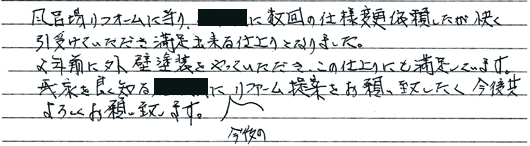 風呂場リフォームに当り、に数回の仕様変更依頼したが快く
引受けていただき満足出来る仕上りとなりました。
2年前に外壁塗装をやっていただき、この仕上りにも満足しています。
我家を良く知るにリフォーム提案をお願い致したく今後共
よろしくお願い致します。
今後の